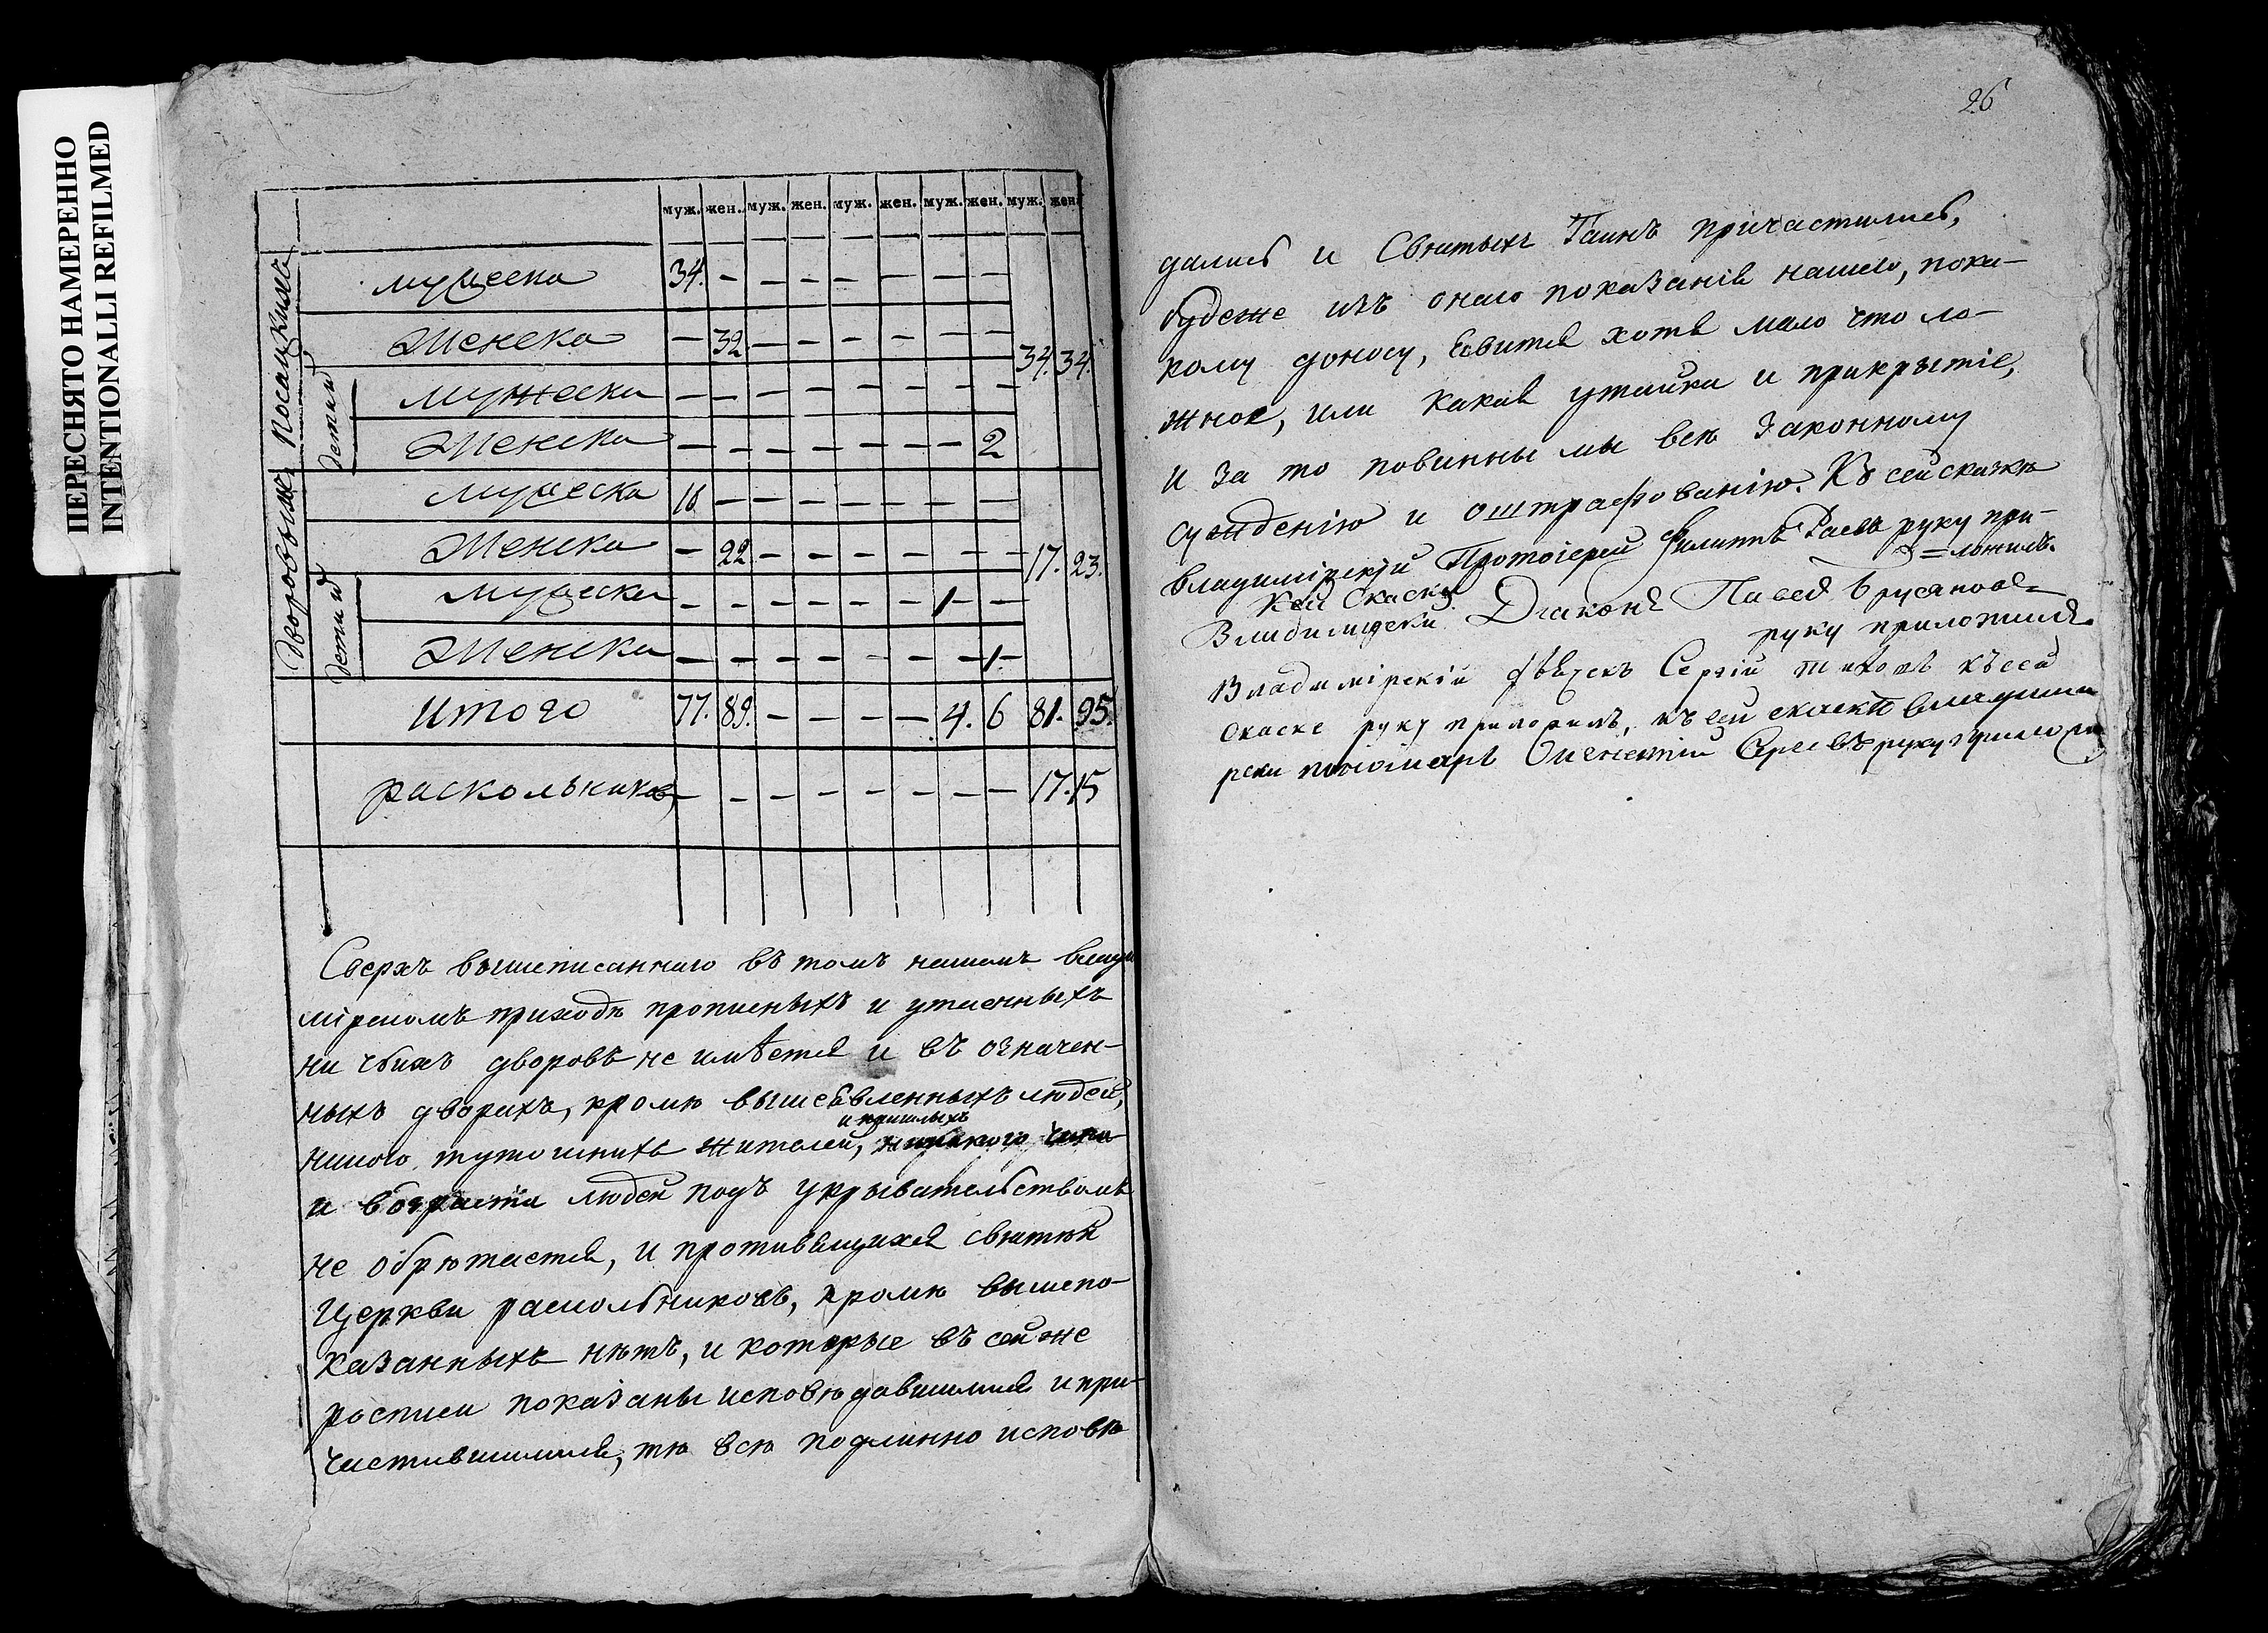 ПЕРЕСНЯТО НАМЕРЕННО
INTENTIONALLI REFILMED
муж. жен. муж. жен. муж. жен. муж. жен. муж. жен.
Посацкихъ
мужеска 34. — — — — — — —
Женска — 32 — — — — — — 34. 34.
детии
мужеска — — — — — — — —
Женска — — — — — — — 2
дворовыхъ
мужеска 16 — — — — — — —
Женска — 22 — — — — — — 17. 23.
детии
мужеска — — — — — — 1 —
Женска — — — — — — — 1
Итого 77. 89. — — — — 4. 6 81. 95.
раскольников — — — — — — — — 17. 15
Сверхъ вышеписанного въ томъ нашемъ влади
мірскомъ приходѣ прописныхъ и утаенныхъ
ни чьихъ дворовъ не имѣется и въ означен-
ныхъ дворахъ, кромѣ вышеявленныхъ людей,
и пришлыхъ
тутошнихъ жителей, никакого чина
и возраста людей подъ укрывательствомъ
не обрѣтается, и противящихся святѣй
Церкви раскольниковъ, кромѣ вышепо-
казанныхъ нѣтъ, и которые въ сей же
росписи показаны исповѣдавшимися и при-
частившимися, тѣ всѣ подлинно исповѣ
26
дались и Святыхъ Таинъ причастились,
будеже изъ онаго показанія нашего, пока-
кому доносу, явится хотя мало что ло-
жное, или какая утайка и прикрытіе,
и за то повинны мы всѣ законному
сужденію и оштрафованію. Къ сей сказкѣ
владимірскій Протоіерей Филиппъ Раевъ руку при-
=ложилъ.
Ксей Скаски
Владимирски Диаконъ Павел Брусянов
руку приложилъ.
Владимірскій Сергій къ сей
скаске руку приложилъ, къ сей скаски владими
рски пономарь руку приложи